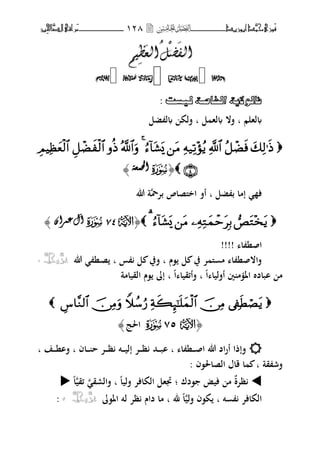 ١٢٨
الفضل العظيم
فالولاية الخاصة ليست :
بالعلم ، ولا بالعمل ، ولكن بالفضل
﴿ ذَٰلِكَ فَضْلُ ٱللَّهِ يُؤْتِيهِ مَن يَشَآءُ ۚ وَٱللَّهُ ذُو ٱلْفَضْلِ ٱلْعَظِيمِ
﴾ الجمعة
فهي إما بفضل ، أو اختصاص برحمة الله
﴿ يَخْتَصُّ بِرَحْمَتِهِۦ مَن يَشَآءُ ۗ ﴾ ٧٤ آل عمران
اصطفاء !!!!
والاصطفاء مستمر في كل يوم ، وفي كل نفس ، يصطفي الله
من عباده المؤمنين أولياءاً ، وأتقياءاً ، إلى يوم القيامة
﴿ ٱللَّهُ يَصْطَفِى مِنَ ٱلْمَلَٰٓئِكَةِ رُسُلًا وَمِنَ ٱلنَّاسِ ﴾
٧٥ الحج
وإذا أراد الله اصطفاء ، عبد نظر إليه نظر حنان ، وعطف ،
وشفقة ، كما قال الصالحون :
نظرةً من فيض جودك ؛ تجعل الكافر ولياً ، والشقيَّ تقيَّاً
الكافر نفسه ، يكون وليَّاً لله ، ما دام نظر له المولى :